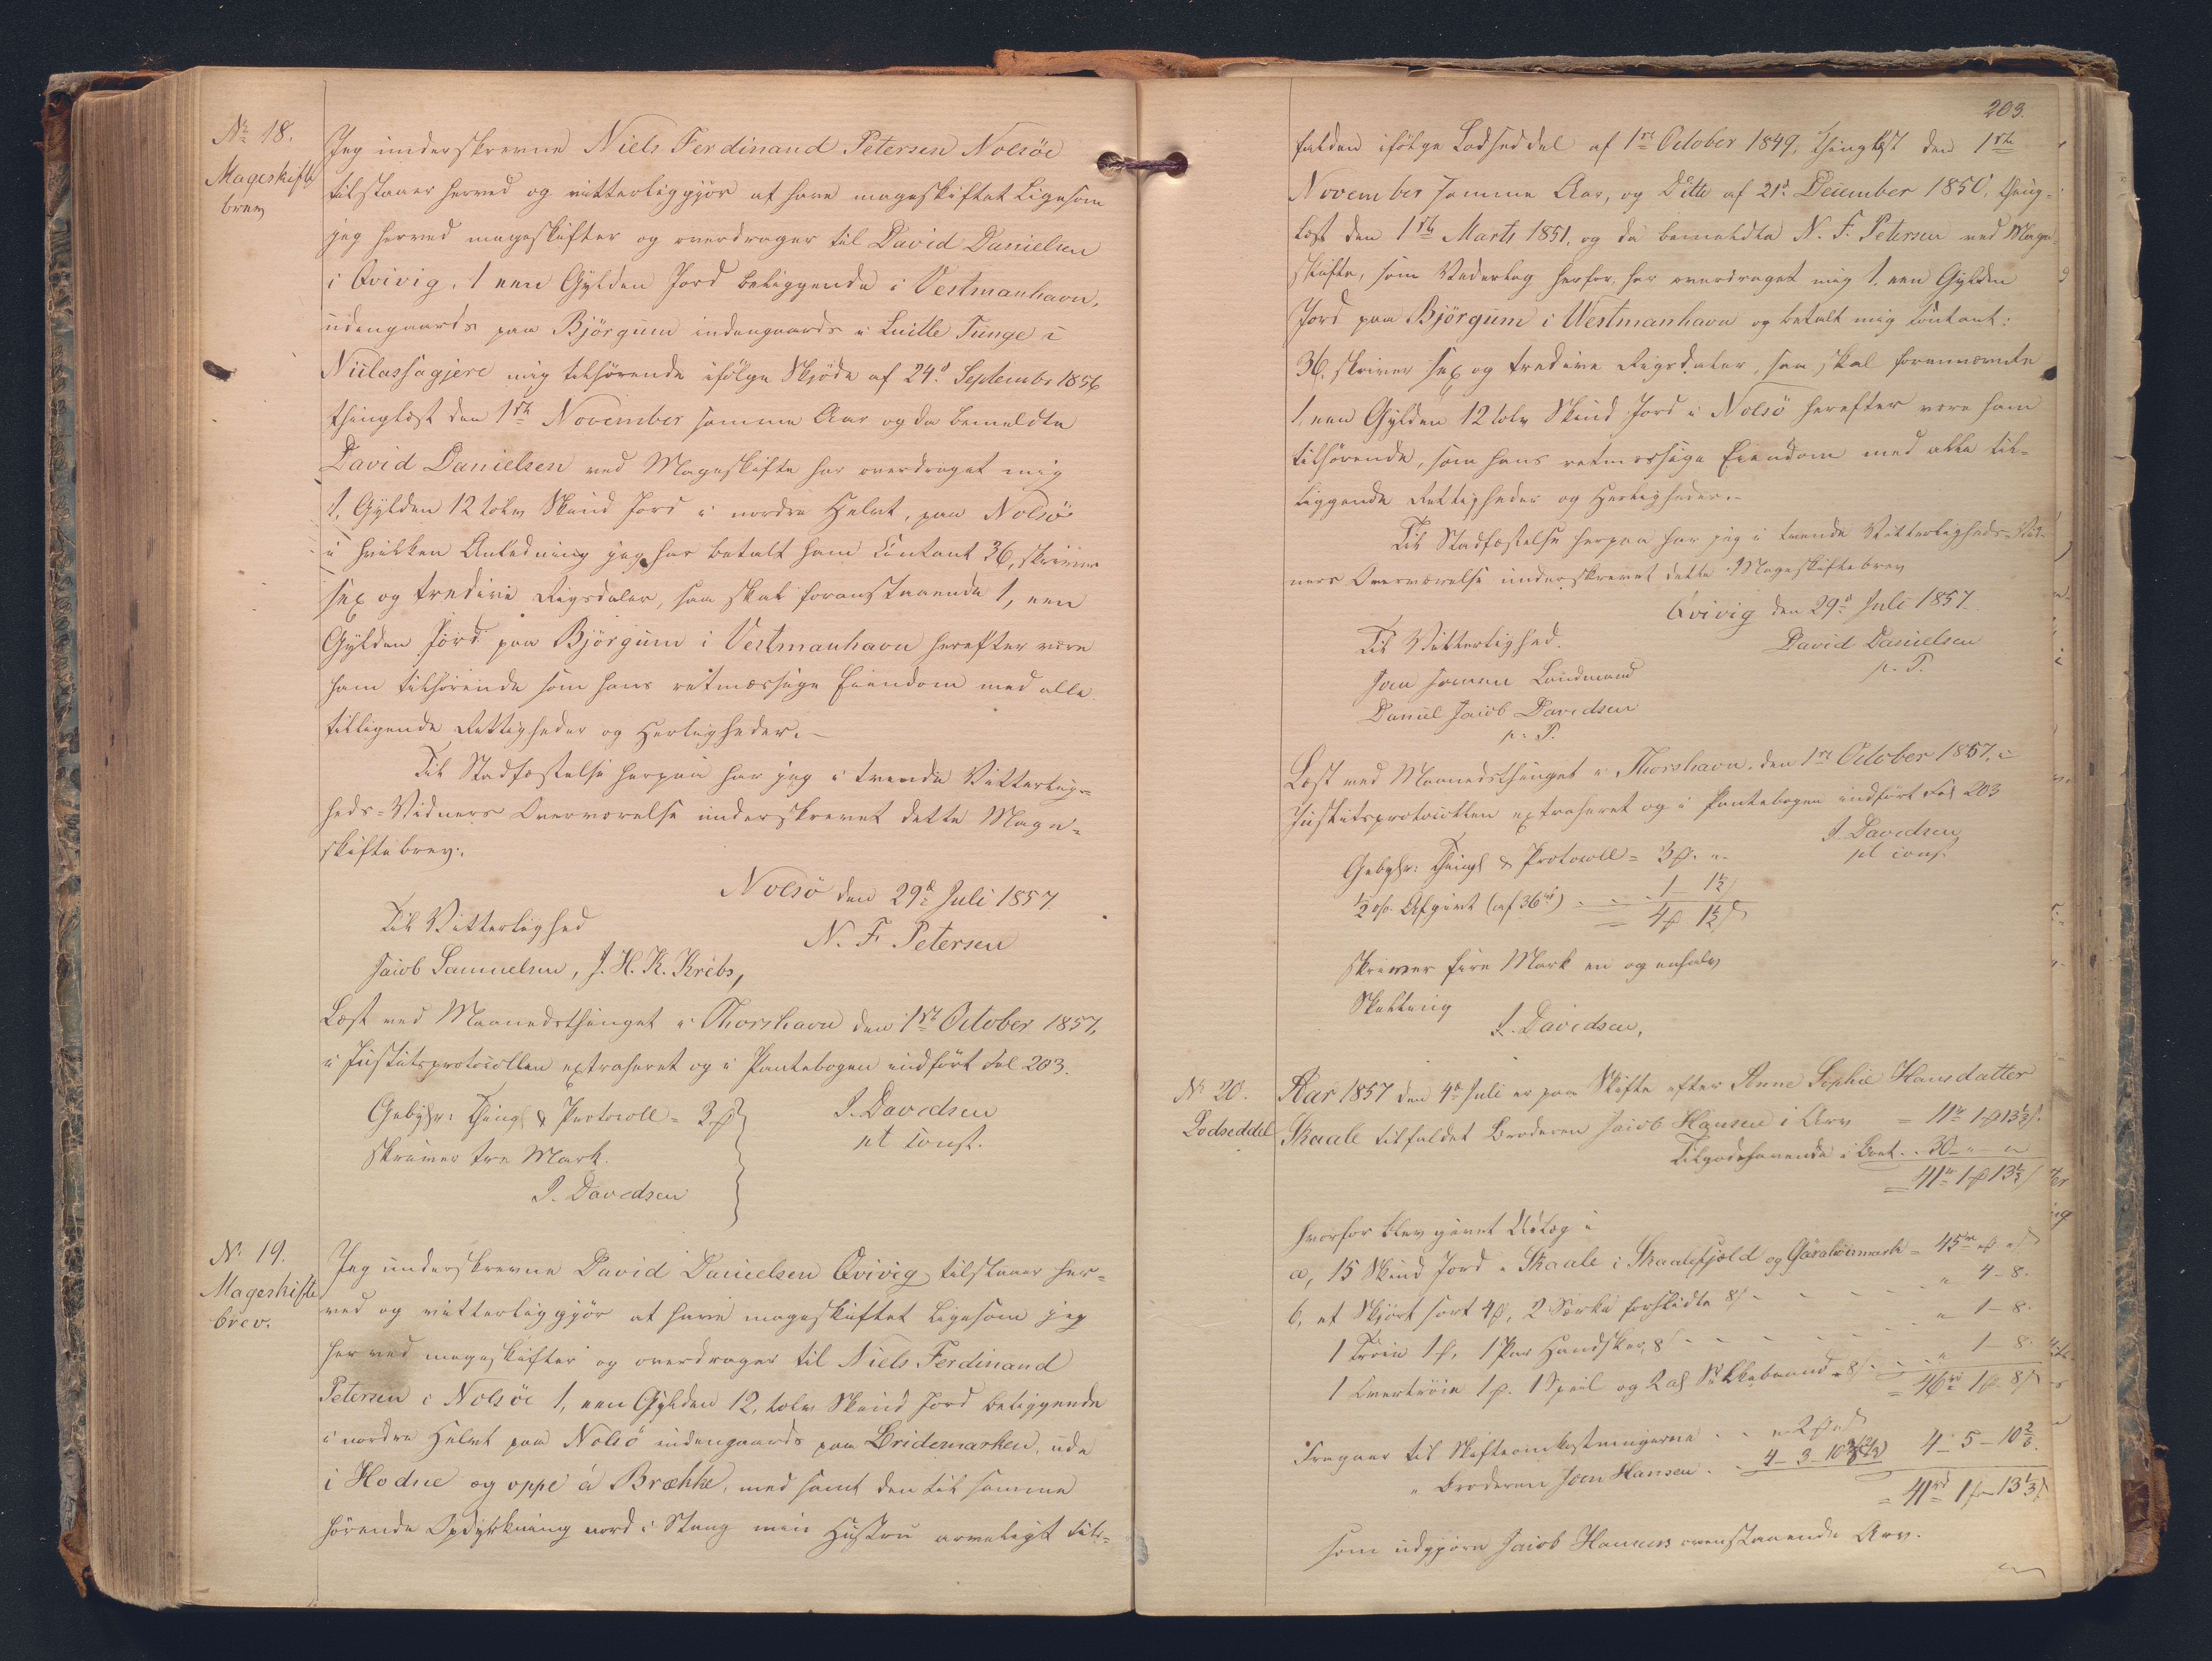 No 18.
Mageskifte
brev
Jeg underskrevne Niels Ferdinand Petersen Nolsöe
tilstaaer herved og vitterliggjör at have mageskiftet Ligesom
jeg herved mageskifter og overdrager til David Danielsen
i Qvivig, 1 een Gylden Jord beliggende i Vestmanhavn,
udengaards paa Björgum indengaards i Tunge i
mig tilhörende ifölge Skjöde af 24d Septembr 1856
thinglæst den 1ste November samme Aar og da bemeldte
David Danielsen ved Mageskifte har overdraget mig
1, Gylden 12 tolv Skind Jord i nordre Helvt, paa Nolsö
i hvilken Anledning jeg har betalt ham Contant 36, skriver
sex og tredive Rigsdaler, saa skal foranstaaende 1, een
Gylden Jord paa Björgum i Vestmanhavn herefter være
ham tilhörende som hans retmæssige Eiendom med alle
tilliggende Rettigheder og Herligheder.-
Til Stadfæstelse herpaa har jeg i tvende Vitterlig-
heds-Vidners Overværelse underskrevet dette Mage-
skiftebrev.
Nolsö den 29d Juli 1857
Til Vitterlighed
N. F. Petersen
Jacob Samuelsen, J. H. K. Krebs,
Læst ved Maanedsthinget i Thorshavn den 1ste October 1857,
i Justitsprotocollen extraheret og i Pantebogen indfört Fol 203.
Gebyhr: Thingl & Protocoll = 3 ꝳ
J. Davidsen
skriver tre Mark.
cst const.
J. Davidsen
No 19.
Mageskifte
brev.
Jeg underskrevne David Danielsen Qvivig, tilstaaer her-
ved og vitterliggjör at have mageskiftet Ligesom jeg
herved mageskifter og overdrager til Niels Ferdinand
Petersen i Nolsöe 1, een Gylden 12, tolv Skind Jord beliggende
i nordre Helvt paa Nolsö indengaards paa Bridemarken, ude
i Hodne og oppe á Brække, med samt den til samme
hörende Opdyrkning nord i Stang min Hustru arveligt til-
203.
falden ifölge Lodseddel af 1st October 1849, thinglæst den 1ste
November samme Aar, og Ditto af 21d December 1850, thing-
læst den 1ste Marts 1851, og da bemeldte N. F. Petersen ved Mage-
skifte, som Vederlag herfor, har overdraget mig 1, een Gylden
Jord paa Björgum i Westmanhavn og betalt mig Contant:
36, skriver sex og tredive Rigsdaler, saa skal forennævnte
1, een Gylden 12 tolv Skind Jord i Nolsö herefter være ham
tilhörende, som hans retmæssige Eiendom med alle til-
liggende Rettigheder og Herligheder.-
Til Stadfæstelse herpaa har jeg i tvende Vitterligheds-Vid-
ners Overværelse underskrevet dette Mageskiftebrev
Qvivig den 29d Juli 1857.
Til Vitterlighed.
David Danielsen
p. P.
Joen Joensen Landmand
Daniel Jacob Davidsen
p. P.
Læst ved Maanedsthinget i Thorshavn, den 1st October 1857, i
Justitsprotocollen extraheret og i Pantebogen indfört Fol 203
J. Davidsen
cst const.
Gebyhr: Thingl & Protocoll = 3 ꝳ. "-
1/2 o/o Afgivt (af 36rd) - - - 1 - 1 1/2
= 4 ꝳ 1 1/2 ß
skriver fire Mark en og enhalv
Skilling
J. Davidsen,
No 20.
Lodseddel
Aar 1857 den 4d Juli er paa Skifte efter Anne Sophie Hansdatter
Skaale tilfaldet Broderen Jacob Hansen i Arv = 11rd 1 ꝳ 13 1/3 ß.
Tilgodehavende i Boet. . 30 - " - "
= 41rd 1 ꝳ 13 1/3 ß
hvorfor blev givet Udlæg i
a, 15 Skind Jord i Skaale i Skaalefjæld og = 45rd " ꝳ " ß
b, et Skjört sort 4 ꝳ, 2 Særke forslidte 8 ß - - - " 4 - 8.
1 Tröie 1 ꝳ, 1 Par Handsker, 8 ß - - - " 1 - 8.
1 Overtröie 1 ꝳ. 1 Speil og 2 al Silkebaand - 8 ß. - - " 1 - 8.
= 46rd 1 ꝳ 8 ß
Fragaaer til Skifteomkostningerne - - " 2 ꝳ " ß
" Broderen Joen Hansen. - 4 - 3 - 10 2/3 4 - 5 - 10 2/3.
= 41rd 1 ꝳ 13 1/3 ß
som udgjöre Jacob Hansens ovenstaaende Arv.